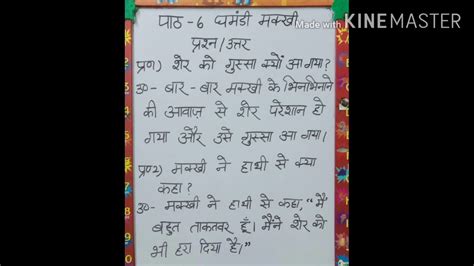 पाठ -6 घमंडी मक्खी
Made with KINEMASTER
प्रश्न/उत्तर
प्र०1) शेर को गुस्सा क्यों आ गया?
उ०- बार-बार मक्खी के भिनभिनाने
की आवाज़ से शेर परेशान हो
गया और उसे गुस्सा आ गया।
प्र०2) मक्खी ने हाथी से क्या
कहा?
उ०- मक्खी ने हाथी से कहा, "मैं
बहुत ताकतवर हूँ। मैंने शेर को
भी हरा दिया है।"